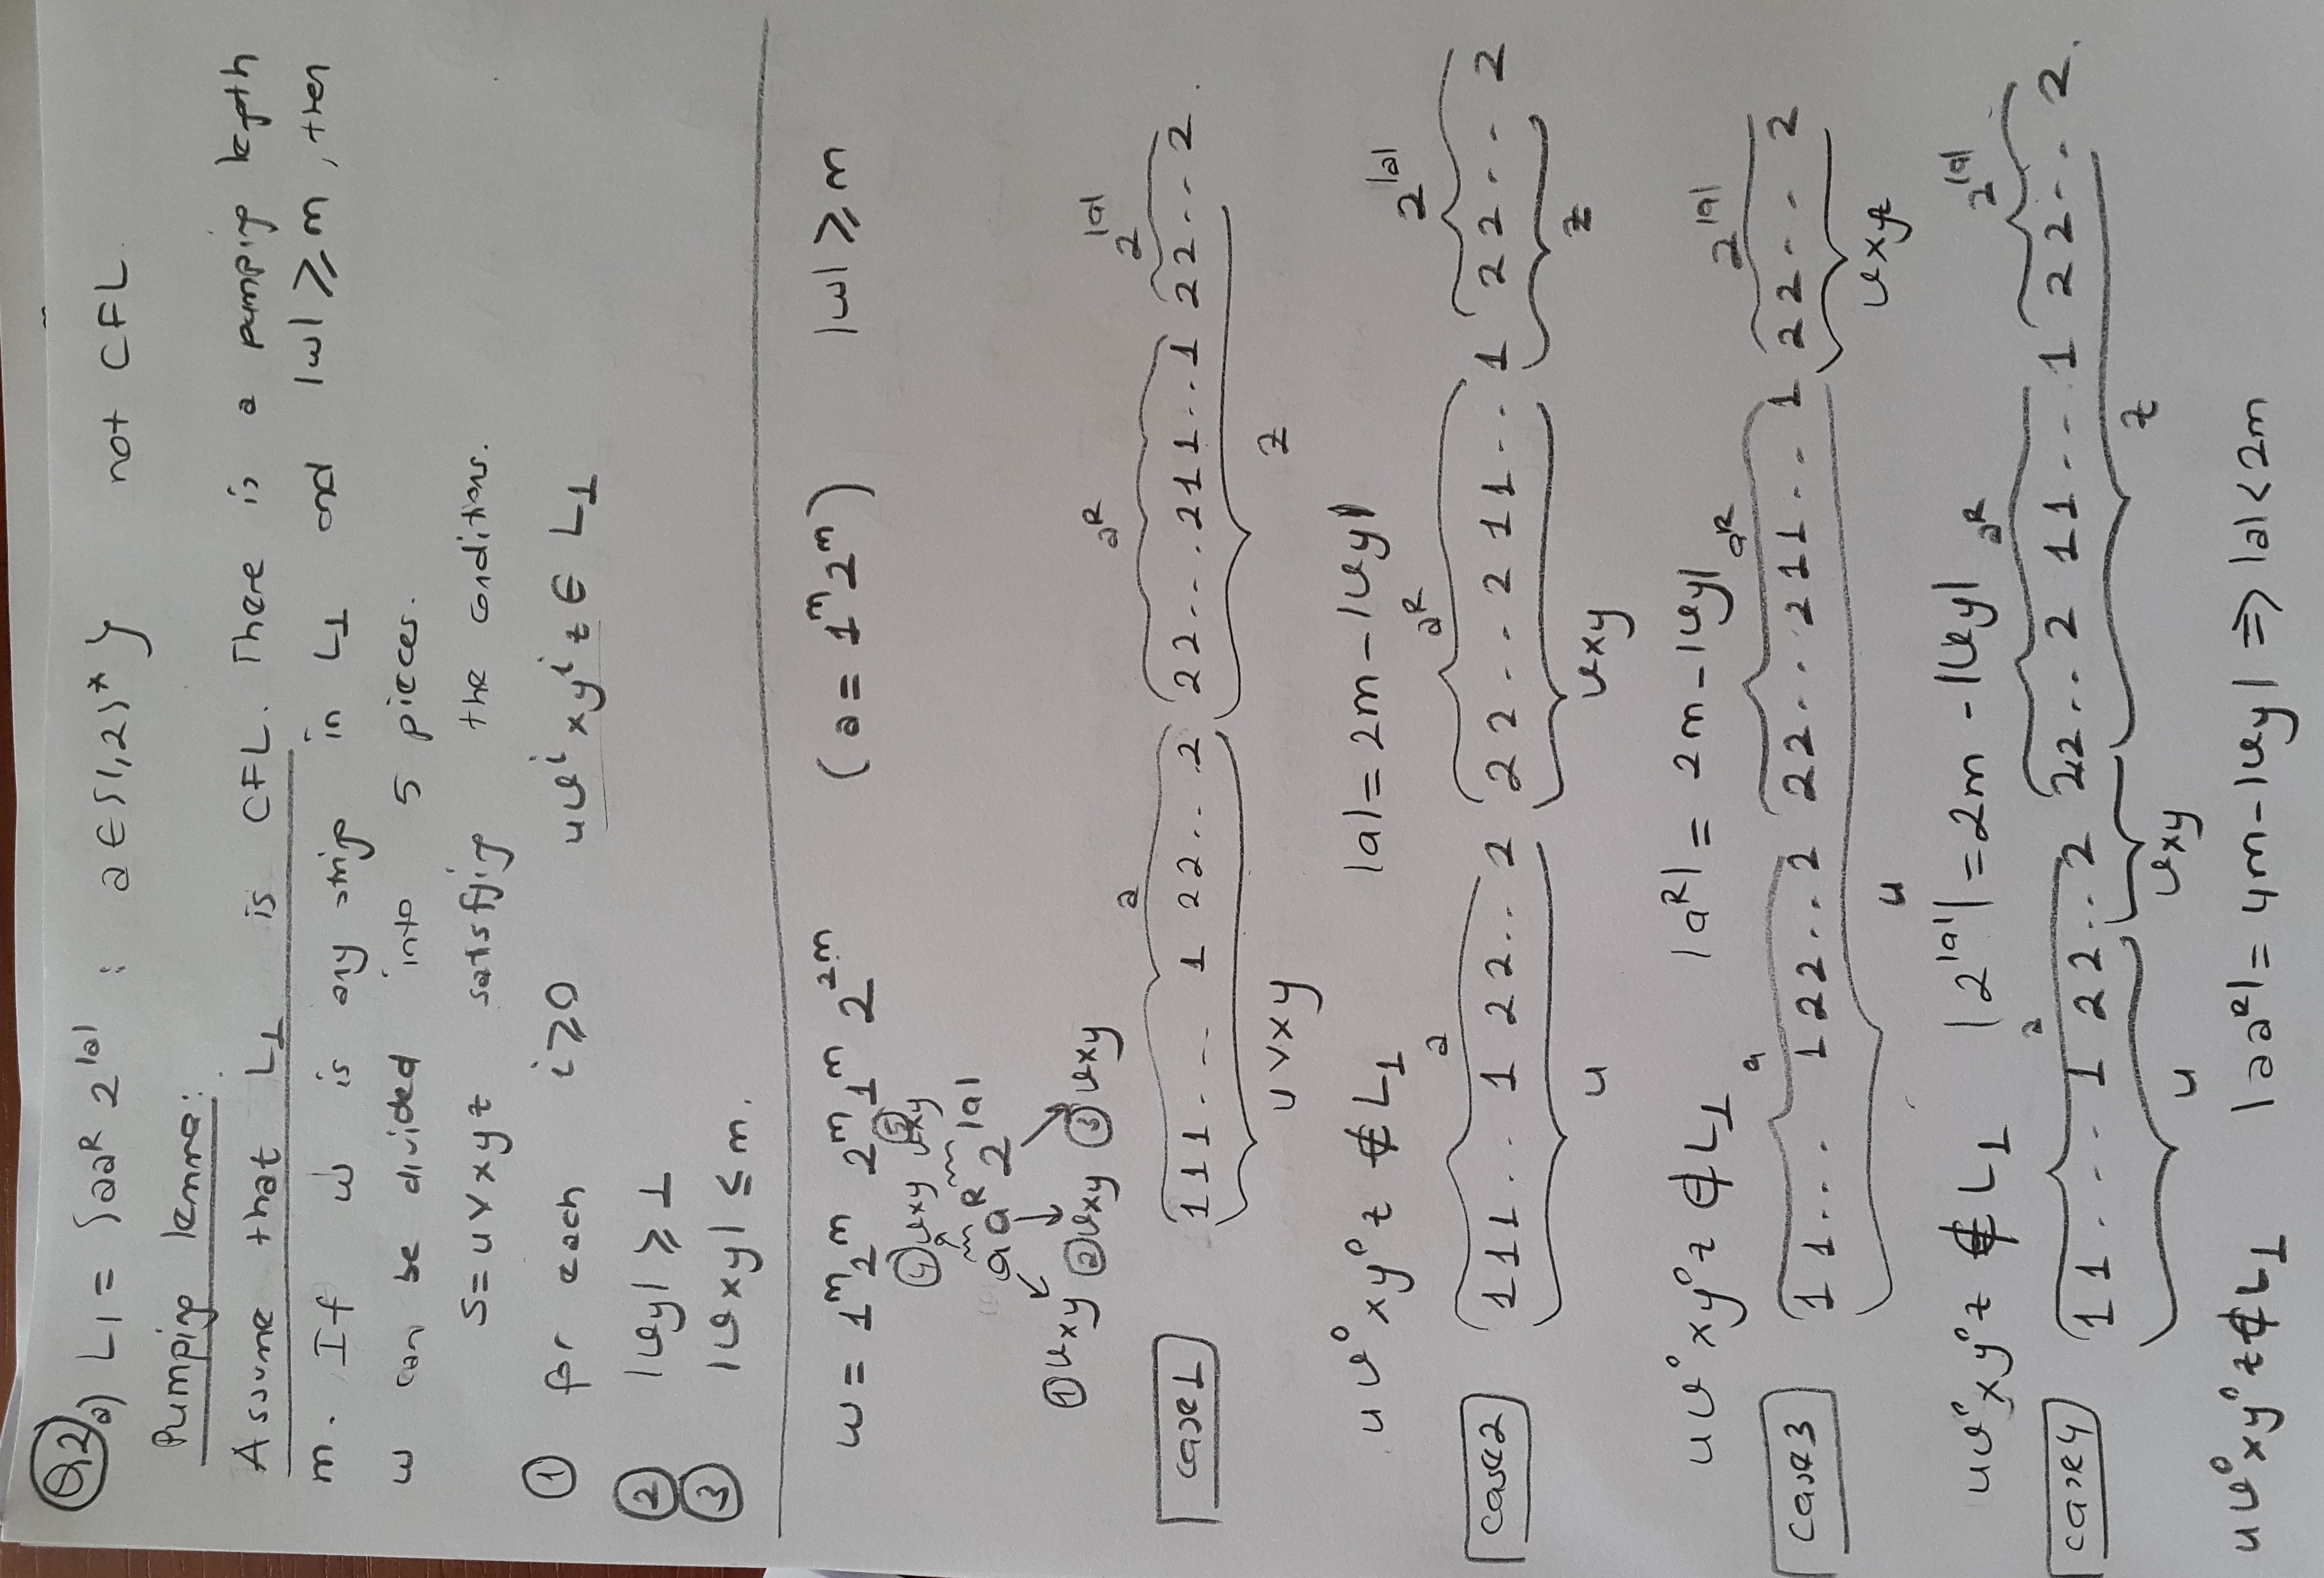 Q2 a) L1 = {aaᴿ 2^|a| : a ∈ {1,2}* } not CFL.
Pumping lemma:
Assume that L1 is CFL. There is a pumping length
m. If w is any string in L1 and |w| ⩾ m, then
w can be divided into 5 pieces.
S = uvxyz satisfying the conditions.
① for each i ⩾ 0 uvⁱxyⁱz ∈ L1
② |vy| ⩾ 1
③ |vxy| ≤ m.
w = 1^m 2^m 2^m 1^m 2^2m (a = 1^m 2^m) |w| ⩾ m
④ vxy ⑤ vxy
a aᴿ 2^|a|
① vxy ② vxy ③ vxy
a aᴿ 2^|a|
case1 111. . . . 1 22.. .2 22...211..1 22..2.
uvxy z
uv⁰xy⁰z ∉ L1 |a| = 2m - |vy|
a aᴿ 2^|a|
case2 111.. 1 22.. 2 22..2 11.. 1 22.. 2
u vxy z
uv⁰xy⁰z ∉ L1 |aᴿ| = 2m - |vy|
a aᴿ 2^|a|
case3 11... 122..2 22..211..1 22.. 2
u vxyz
uv⁰xy⁰z ∉ L1 |2^|a|| = 2m - |vy|
a aᴿ 2^|a|
case4 11. ... 1 22..2 22..2 11...1 22.. 2.
u vxy z
uv⁰xy⁰z ∉ L1 |aaᴿ| = 4m - |vy| ⇒ |a| < 2m